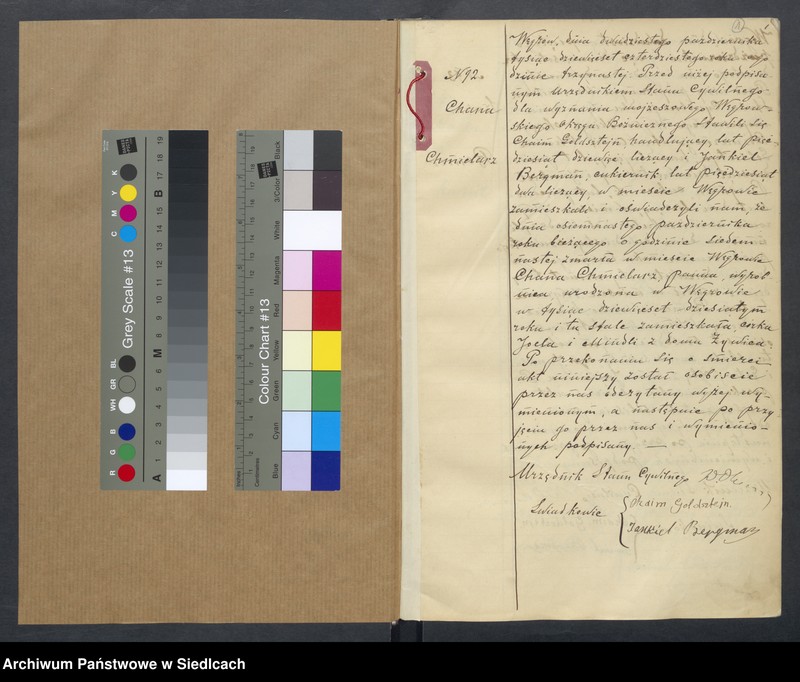 Nº 92.
Chana
Chmielarz
Węgrów, dnia dwudziestego października
tysiąc dziewięćset czterdziestego roku o go
dzinie trzynastej. Przed niżej podpisa
nym Urzędnikiem Stanu Cywilnego
dla wyznania mojżeszowego Węgrow-
skiego Okręgu Bożniczego stawili się
Chaim Goldsztejn, handlujący, lat pięć-
dziesiąt dziewięć liczący i Jankiel
Bergman, cukiernik, lat pięćdziesiąt
dwa liczący, w mieście Węgrowie
zamieszkali i oświadczyli nam, że
dnia osiemnastego października
roku bieżącego o godzinie siedem-
nastej zmarła w mieście Węgrowie
Chana Chmielarz, panna, wyrob
nica urodzona w Węgrowie
w tysiąc dziewięćset dziesiątym
roku i tu stale zamieszkała córka
Joela i Mindli z domu Żywica.
Po przekonaniu się o śmierci
akt niniejszy został osobiście
przez nas odczytany wyżej wy-
mienionym, a następnie po przy
jęciu go przez nas i wymienio-
nych podpisany. —
Urzędnik Stanu Cywilnego
Świadkowie
Chaim Goldsztejn
Jankiel Bergman
Grey Scale #13
C M Y K
R G B WH GR BL
A 1 2 3 4 5 6 M 8 9 10 11 12 13 14 15 B 17 18 19
Colour Chart #13
Blue Cyan Green Yellow Red Magenta White 3/Color Black
Inches
Centimetres
Archiwum Państwowe w Siedlcach